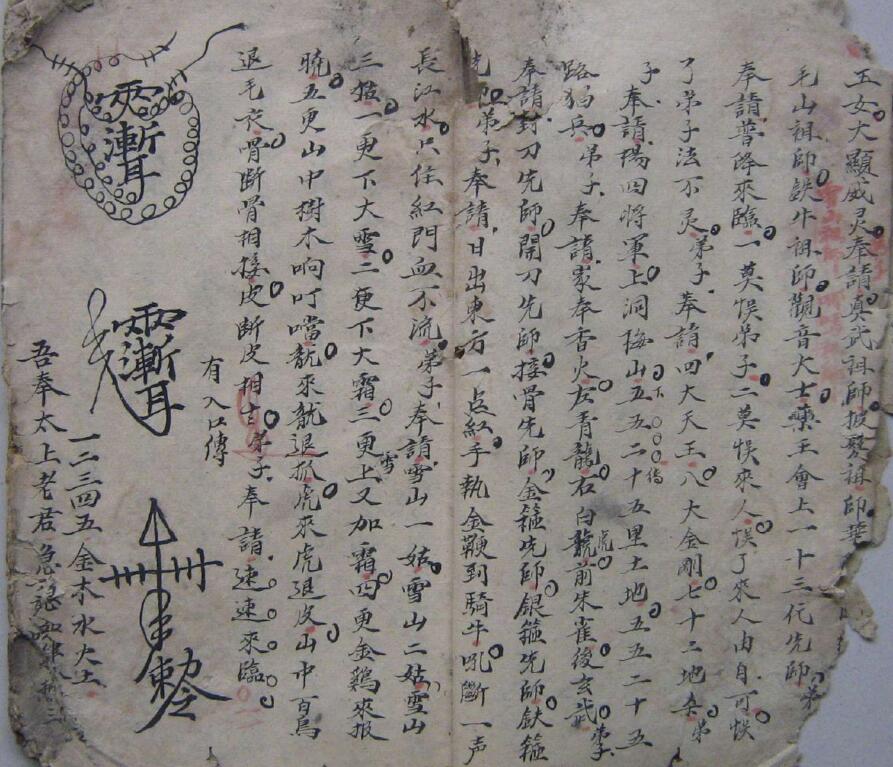 玉女大顯威灵奉請真武祖師披髮祖師華
毛山祖師鉄牛祖師觀音大士藥王會上一十三代先師弟
奉請普降來臨一莫悞弟子二莫悞來人悞了來人由自可悞
了弟子法不灵弟子奉請四大天王八大金剛七十二地杀弟
子奉請楊四將軍上洞梅山五五二十五里土地五五二十五
路猖兵弟子奉請家奉香火左青龍右白虎前朱雀後玄武弟子
奉請封刀先師開刀先師接骨先師金箍先師銀箍先師鉄箍
先師弟子奉請日出東方一点紅手執金鞭到騎牛吼斷一声
長江水只住紅門血不流弟子奉請雪山一姑雪山二姑雪山
三姑一更下大雪二更下大霜三更上又加霜四更金鷄來报
曉五更山中樹木响叮噹龍來龍退爪虎來虎退皮山中百鳥
退毛衣骨斷骨相接皮斷皮相弟子奉請速速來臨
有入口傳
霛漸耳
霛漸耳
一二三四五金木水火土
吾奉太上老君急
敕令